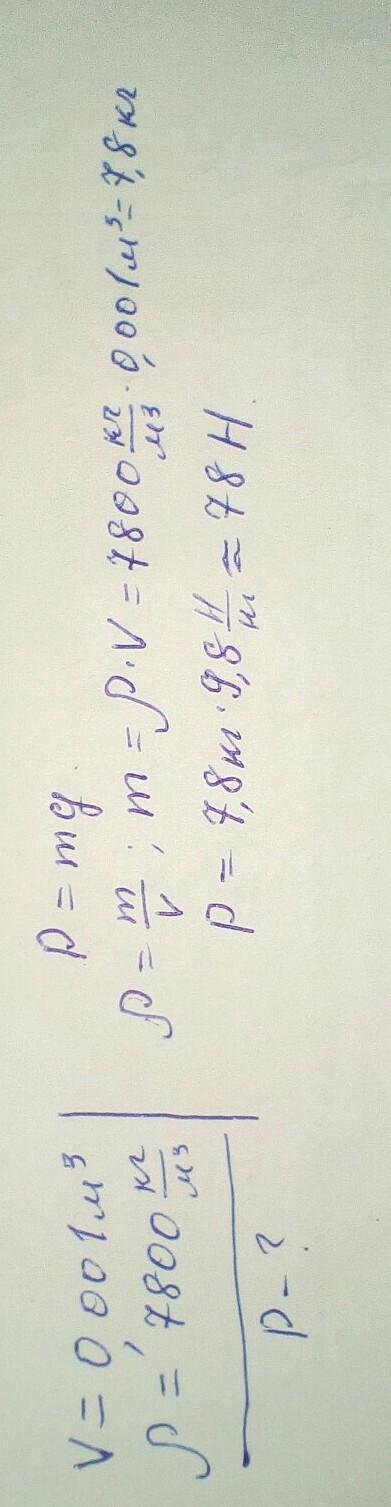 V = 0,001 м³
ρ = 7800 кг/м³
P - ?
P = mg
ρ = m/V ; m = ρ·V = 7800 кг/м³ · 0,001 м³ = 7,8 кг
P = 7,8 кг · 9,8 Н/кг ≈ 78 Н